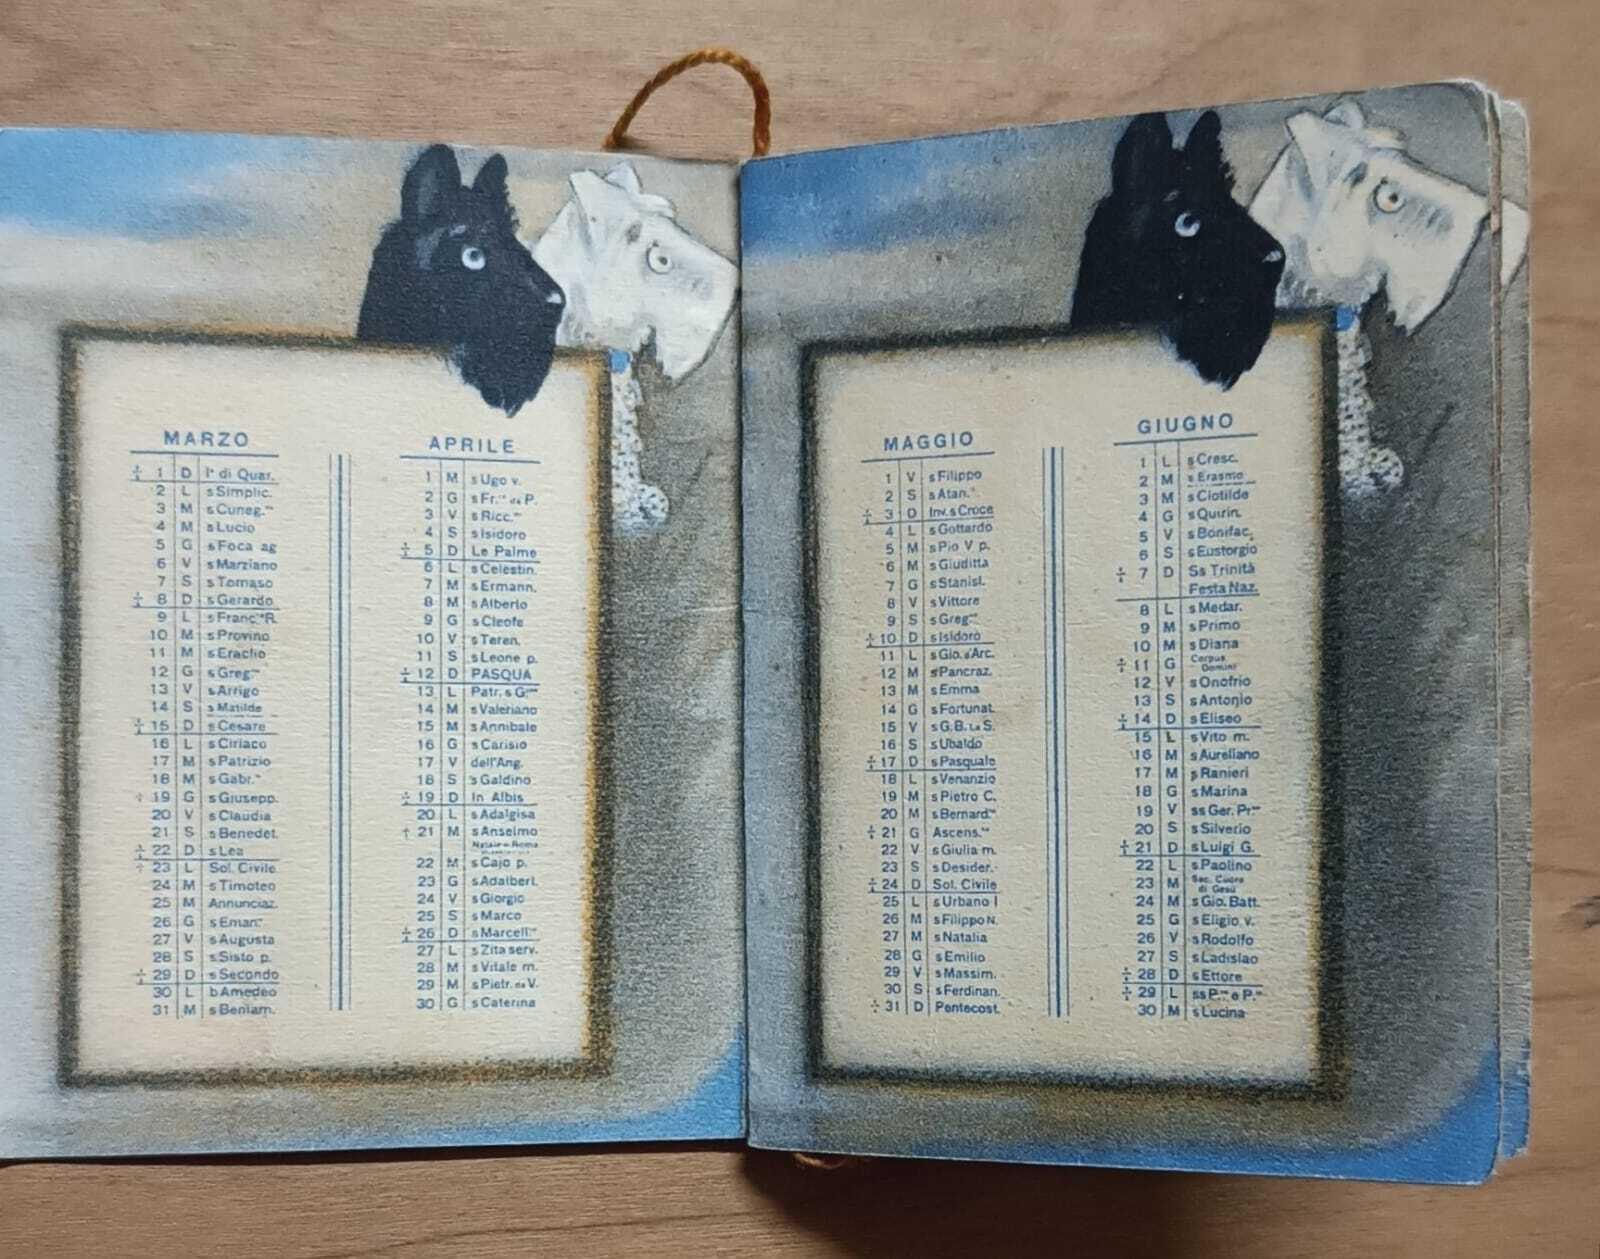 MARZO
1 D Iª di Quar.
2 L s Simplic.
3 M s Cuneg.
4 M s Lucio
5 G s Foca ag
6 V s Marziano
7 S s Tomaso
8 D s Gerardo
9 L s Franc. R.
10 M s Provino
11 M s Eraclio
12 G s Greg.
13 V s Arrigo
14 S s Matilde
15 D s Cesare
16 L s Ciriaco
17 M s Patrizio
18 M s Gabr.
19 G s Giusepp.
20 V s Claudia
21 S s Benedet.
22 D s Lea
23 L Sol. Civile
24 M s Timoteo
25 M Annunciaz.
26 G s Eman.
27 V s Augusta
28 S s Sisto p.
29 D s Secondo
30 L b Amedeo
31 M s Beniam.
APRILE
1 M s Ugo v.
2 G s Fr. da P.
3 V s Ricc.
4 S s Isidoro
5 D Le Palme
6 L s Celestin.
7 M s Ermann.
8 M s Alberto
9 G s Cleofe
10 V s Teren.
11 S s Leone p.
12 D PASQUA
13 L Patr. s G.
14 M s Valeriano
15 M s Annibale
16 G s Carisio
17 V dell'Ang.
18 S s Galdino
19 D In Albis
20 L s Adalgisa
21 M s Anselmo
Natale Roma
22 M s Cajo p.
23 G s Adalbert.
24 V s Giorgio
25 S s Marco
26 D s Marcell.
27 L s Zita serv.
28 M s Vitale m.
29 M s Pietr. da V.
30 G s Caterina
MAGGIO
1 V s Filippo
2 S s Atan.
3 D Inv. s Croce
4 L s Gottardo
5 M s Pio V p.
6 M s Giuditta
7 G s Stanisl.
8 V s Vittore
9 S s Greg.
10 D s Isidoro
11 L s Gio. d'Arc.
12 M s Pancraz.
13 M s Emma
14 G s Fortunat.
15 V s G.B. La S.
16 S s Ubaldo
17 D s Pasquale
18 L s Venanzio
19 M s Pietro C.
20 M s Bernard.
21 G Ascens.
22 V s Giulia m.
23 S s Desider.
24 D Sol. Civile
25 L s Urbano I
26 M s Filippo N.
27 M s Natalia
28 G s Emilio
29 V s Massim.
30 S s Ferdinan.
31 D Pentecost.
GIUGNO
1 L s Cresc.
2 M s Erasmo
3 M s Clotilde
4 G s Quirin.
5 V s Bonifac.
6 S s Eustorgio
7 D Ss Trinità
Festa Naz.
8 L s Medar.
9 M s Primo
10 M s Diana
11 G Corpus Domini
12 V s Onofrio
13 S s Antonio
14 D s Eliseo
15 L s Vito m.
16 M s Aureliano
17 M s Ranieri
18 G s Marina
19 V ss Ger. Pr.
20 S s Silverio
21 D s Luigi G.
22 L s Paolino
23 M Sac. Cuore di Gesù
24 M s Gio. Batt.
25 G s Eligio v.
26 V s Rodolfo
27 S s Ladislao
28 D s Ettore
29 L ss P. e P.
30 M s Lucina